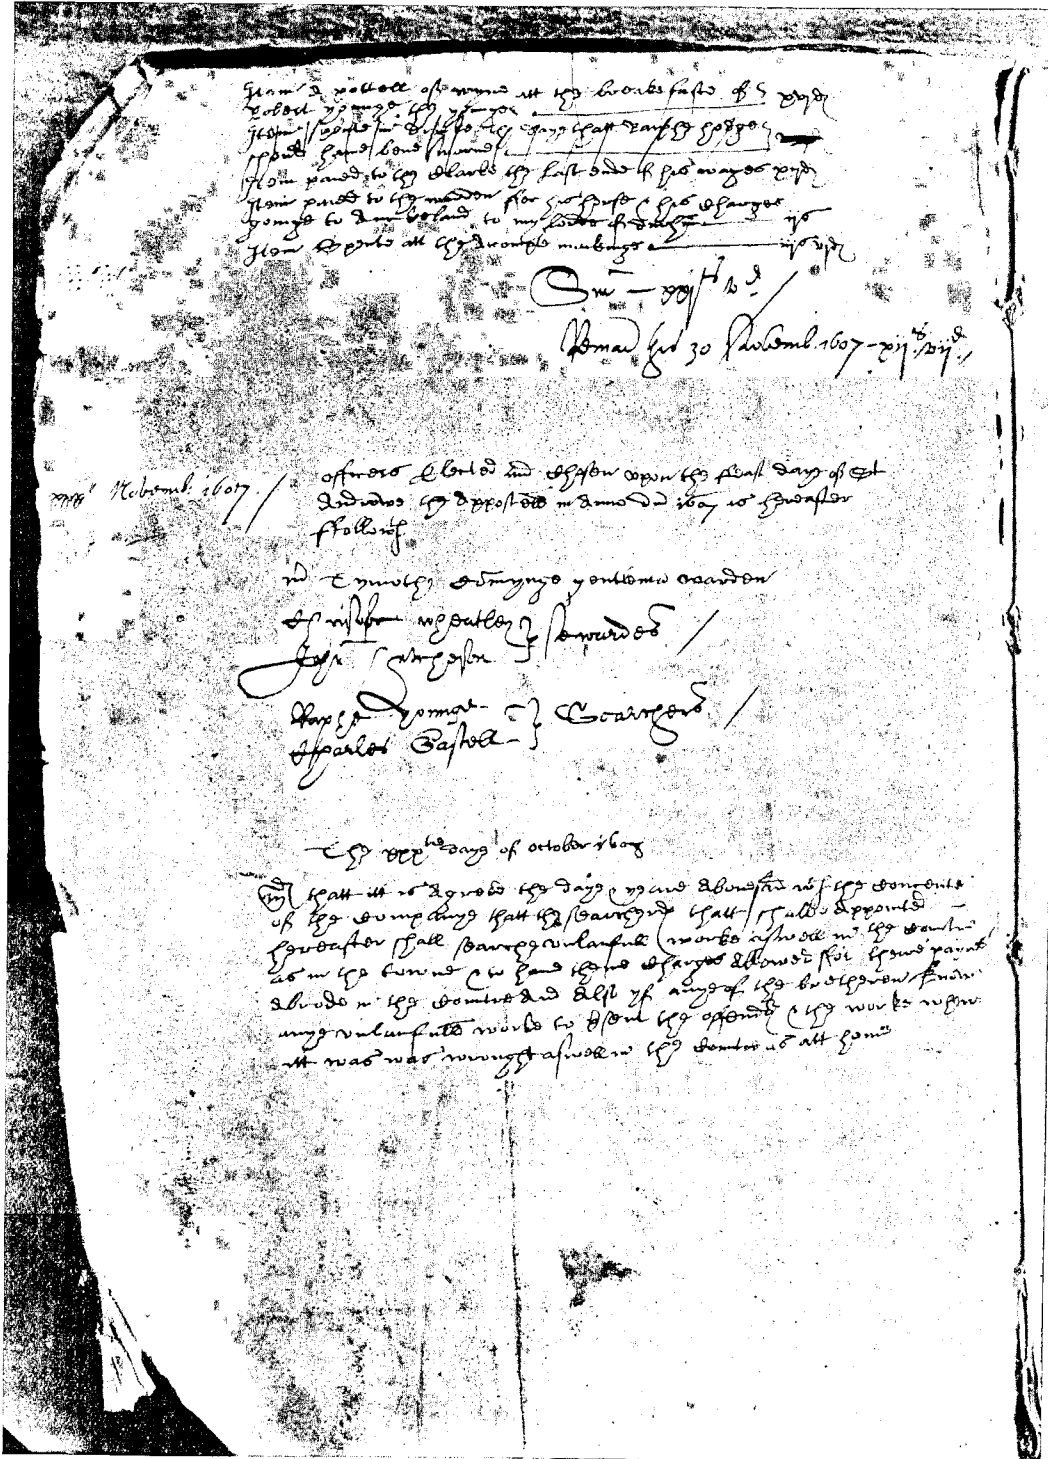 Item A pottell of wyne att the breakefaste of
Robert yonge the yonger xvjd
Item spente in the daye thatt Raiphe
have bene sworne
Item paied to the Clarke the last ende of his wages xvjd
Item paied to the warden for his horse & his Charges
goinge to to my Lordes ijs
Item Spente att the makinge ijs vjd
Sm – xxjs vd /
Reman his 30 Novemb. 1607 – xijs vijd /
xxxº Novemb. 1607 /
officers Elected and Chosen upon the feast daye of St
Androwe the Appostell in Anno dni 1607 as hereafter
ffolloweth
md Tymothy gentleman warden
Christofer Wheatley } Stewardes /
John Hutcheson
Raiphe yonge } Searchers /
Charles Castell
The xxxth daye of october 1608
md thatt itt is Agreed the daye & yeare Abovesaid wth the Concente
of the Companye thatt the searchers thatt shalbe Appointed
hereafter shall searche unlaufull worke aswell in the Contrie
as in the towne & to have there Charges Alowed for there paynes
Abrode in the Contre And Also yf anye of the bretheren know
anye unlaufull worke to the offender & the worke wher
itt was was wrought aswell in the Contre as att home